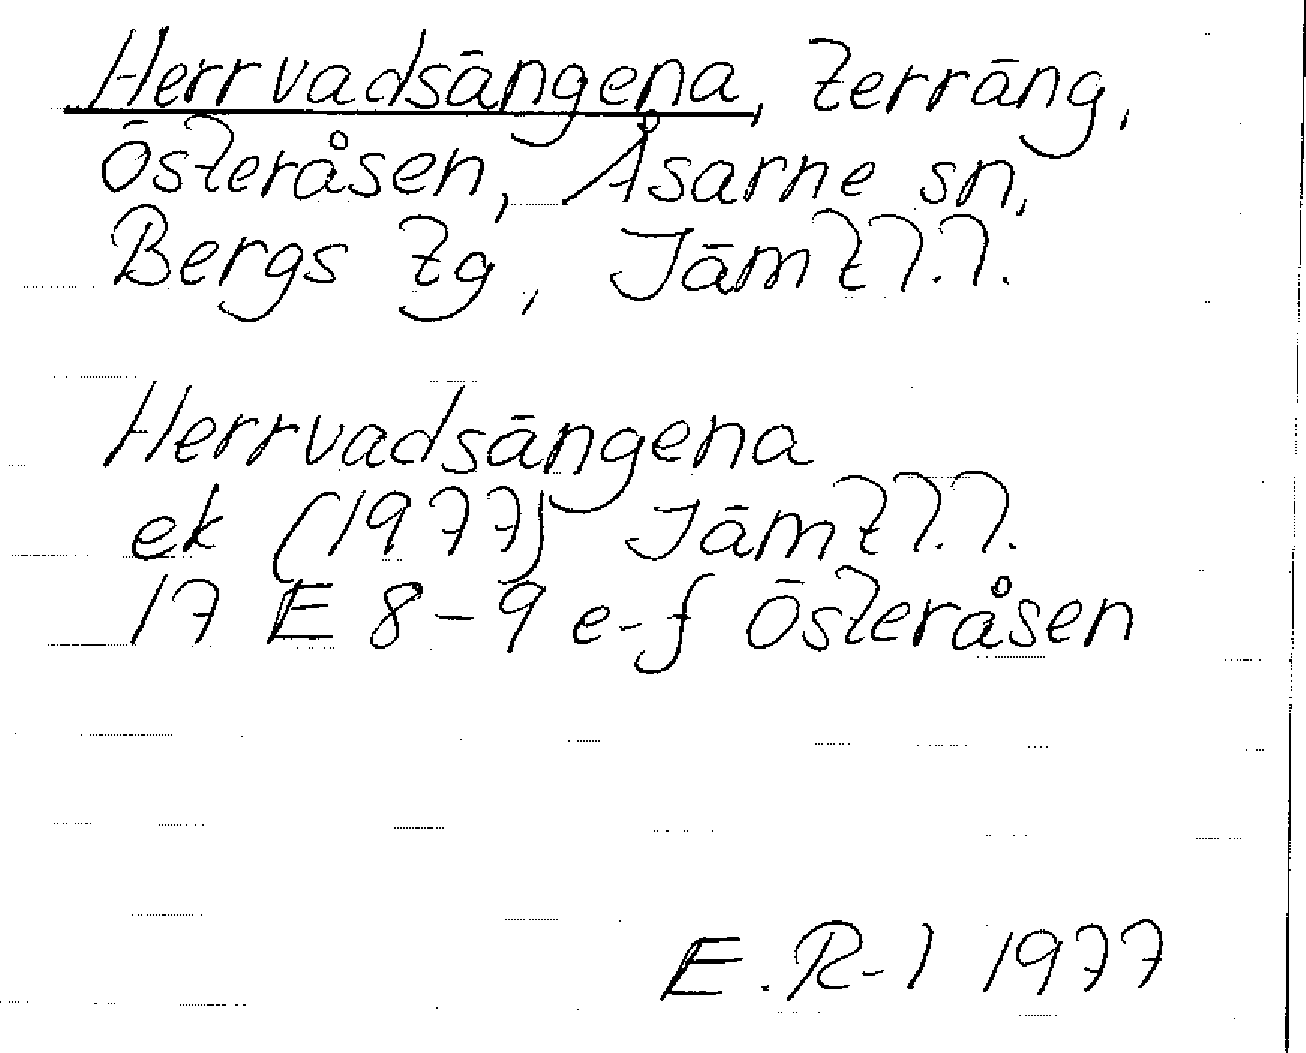 Herrvadsängena, terräng,
Österåsen, Åsarne sn,
Bergs tg, Jämtl.l.
Herrvadsängena
ek (1977) Jämtl.l.
17 E 8-9 e-f Österåsen
E.R-l 1977